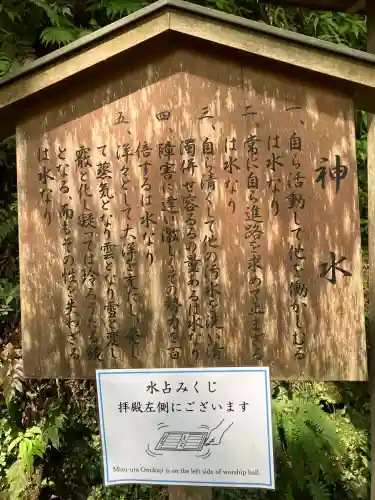 神水
一、自ら活動して他を動かしむる
は水なり
二、常に自ら進路を求めて止まざる
は水なり
三、自ら清くして他の汚水を洗い清
濁併せ容るるの量あるは水なり
四、障害に遭い激しくその勢力を百
倍するは水なり
五、洋々として大洋を充たし、発し
て蒸気となり雲となり雪と変じ
霰と化し凝っては玲ろうたる鏡
となる、而もその性を失わざる
は水なり
水占みくじ
拝殿左側にございます
Mizu-ura Omikuji is on the left side of worship hall.